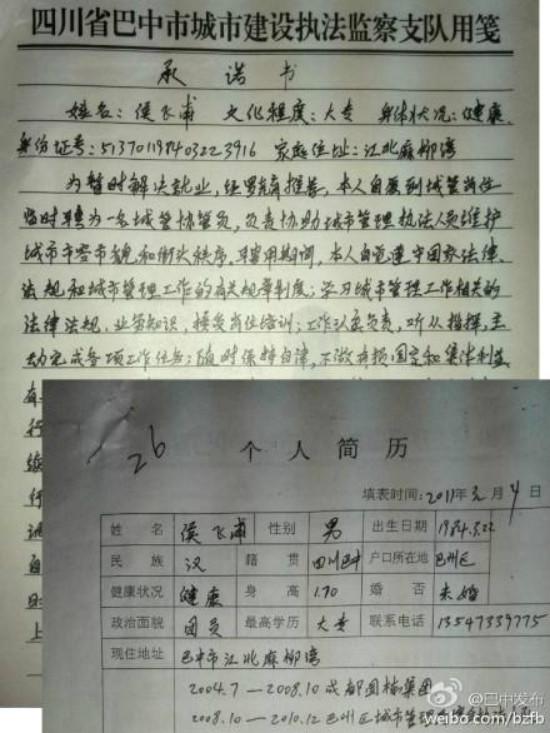 四川省巴中市城市建设执法监察支队用笺
承诺书
姓名：侯飞甫 文化程度：大专 身体状况：健康
身份证号：513701198403223916 家庭住址：江北麻柳湾
为暂时解决就业，经推荐，本人自愿到城管岗位
临时聘为一名城管协管员，负责协助城市管理执法人员维护
城市市容市貌和街头秩序。聘用期间，本人自觉遵守国家法律、
法规和城市管理工作的有关规章制度；学习城市管理工作相关的
法律法规、业务知识，接受岗位培训；工作认真负责，听从指挥，主
动完成各项工作任务；随时保持自律，不做有损国家和集体利益
26
个人简历
填表时间：2011年3月4日
姓名 侯飞甫 性别 男 出生日期 1984.3.22
民族 汉 籍贯 四川巴中 户口所在地 巴州区
健康状况 健康 身高 1.70 婚否 未婚
政治面貌 团员 最高学历 大专 联系电话 13547339775
现住地址 巴中市江北麻柳湾
2004.7—2008.10 成都国栋集团
2008.10—2010.12 巴州区城市管理
@巴中发布
weibo.com/bzfb